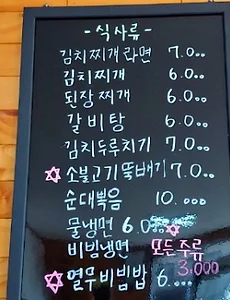 - 식사류 -
김치찌개라면 7.000
김치찌개 6.000
된장찌개 6.000
갈비탕 6.000
김치두루치기 7.000
소불고기뚝배기 7.000
순대볶음 10.000
물냉면 6.000
비빔냉면 모든주류
3,000
열무비빔밥 6.